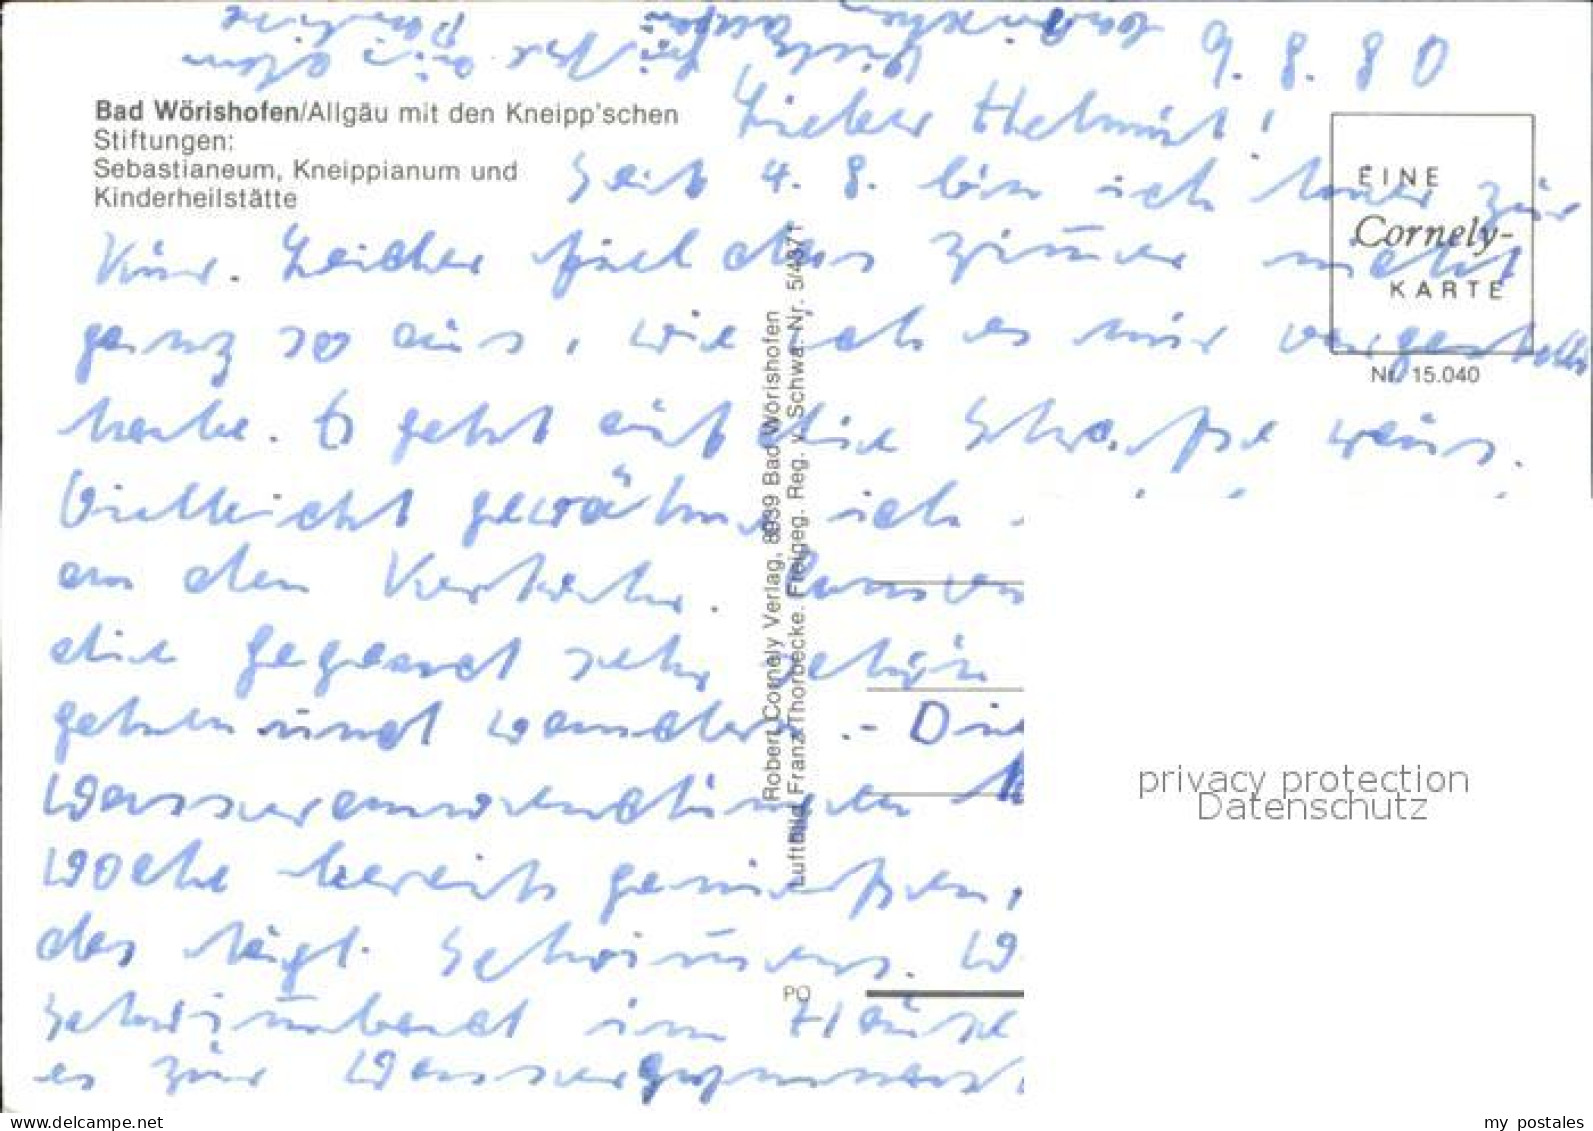 9.8.80
Lieber Helmut!
Bad Wörishofen/Allgäu mit den Kneipp'schen
Stiftungen:
Sebastianeum, Kneippianum und
Kinderheilstätte
Seit 4.8. bin ich hier zur
Kur. Leider fiel das Zimmer nicht
ganz so aus, wie ich es mir vorgestellt
habe. Es geht auf die Straße raus.
Vielleicht gewöhne ich
an den Verkehr. Sonst
die Gegend sehr schön
gehen und wandern. - Die
Wasseranwendungen
Woche bereits genießen,
des tägl. Schwimmens. W
Schwimmbad im Hause
es zur Wassergymnast.
EINE
Cornely-
KARTE
Nr. 15.040
Robert Cornely Verlag, 8939 Bad Wörishofen
Luftbild Franz Thorbecke. Freigeg. Reg. v. Schwa. Nr. 5/4371
PO
privacy protection
Datenschutz
www.delcampe.net
my_postales